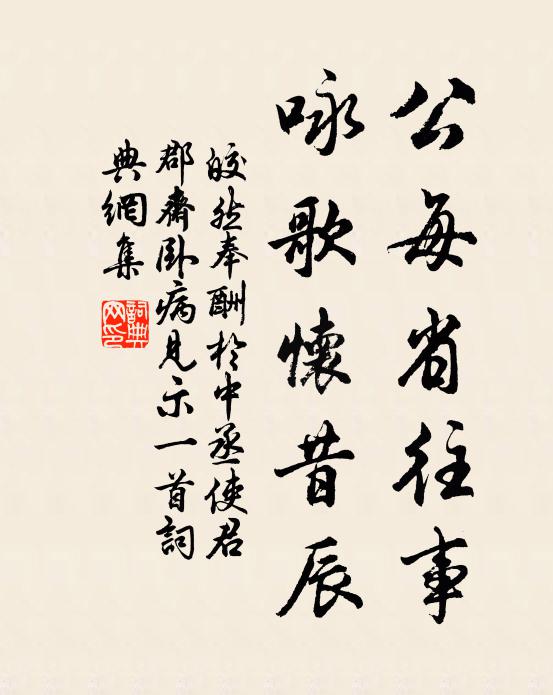 公每省往事
咏歌懷昔辰
皎然奉酬於中丞使君
郡齋卧病見示一首詞
典網集
詞典
网印